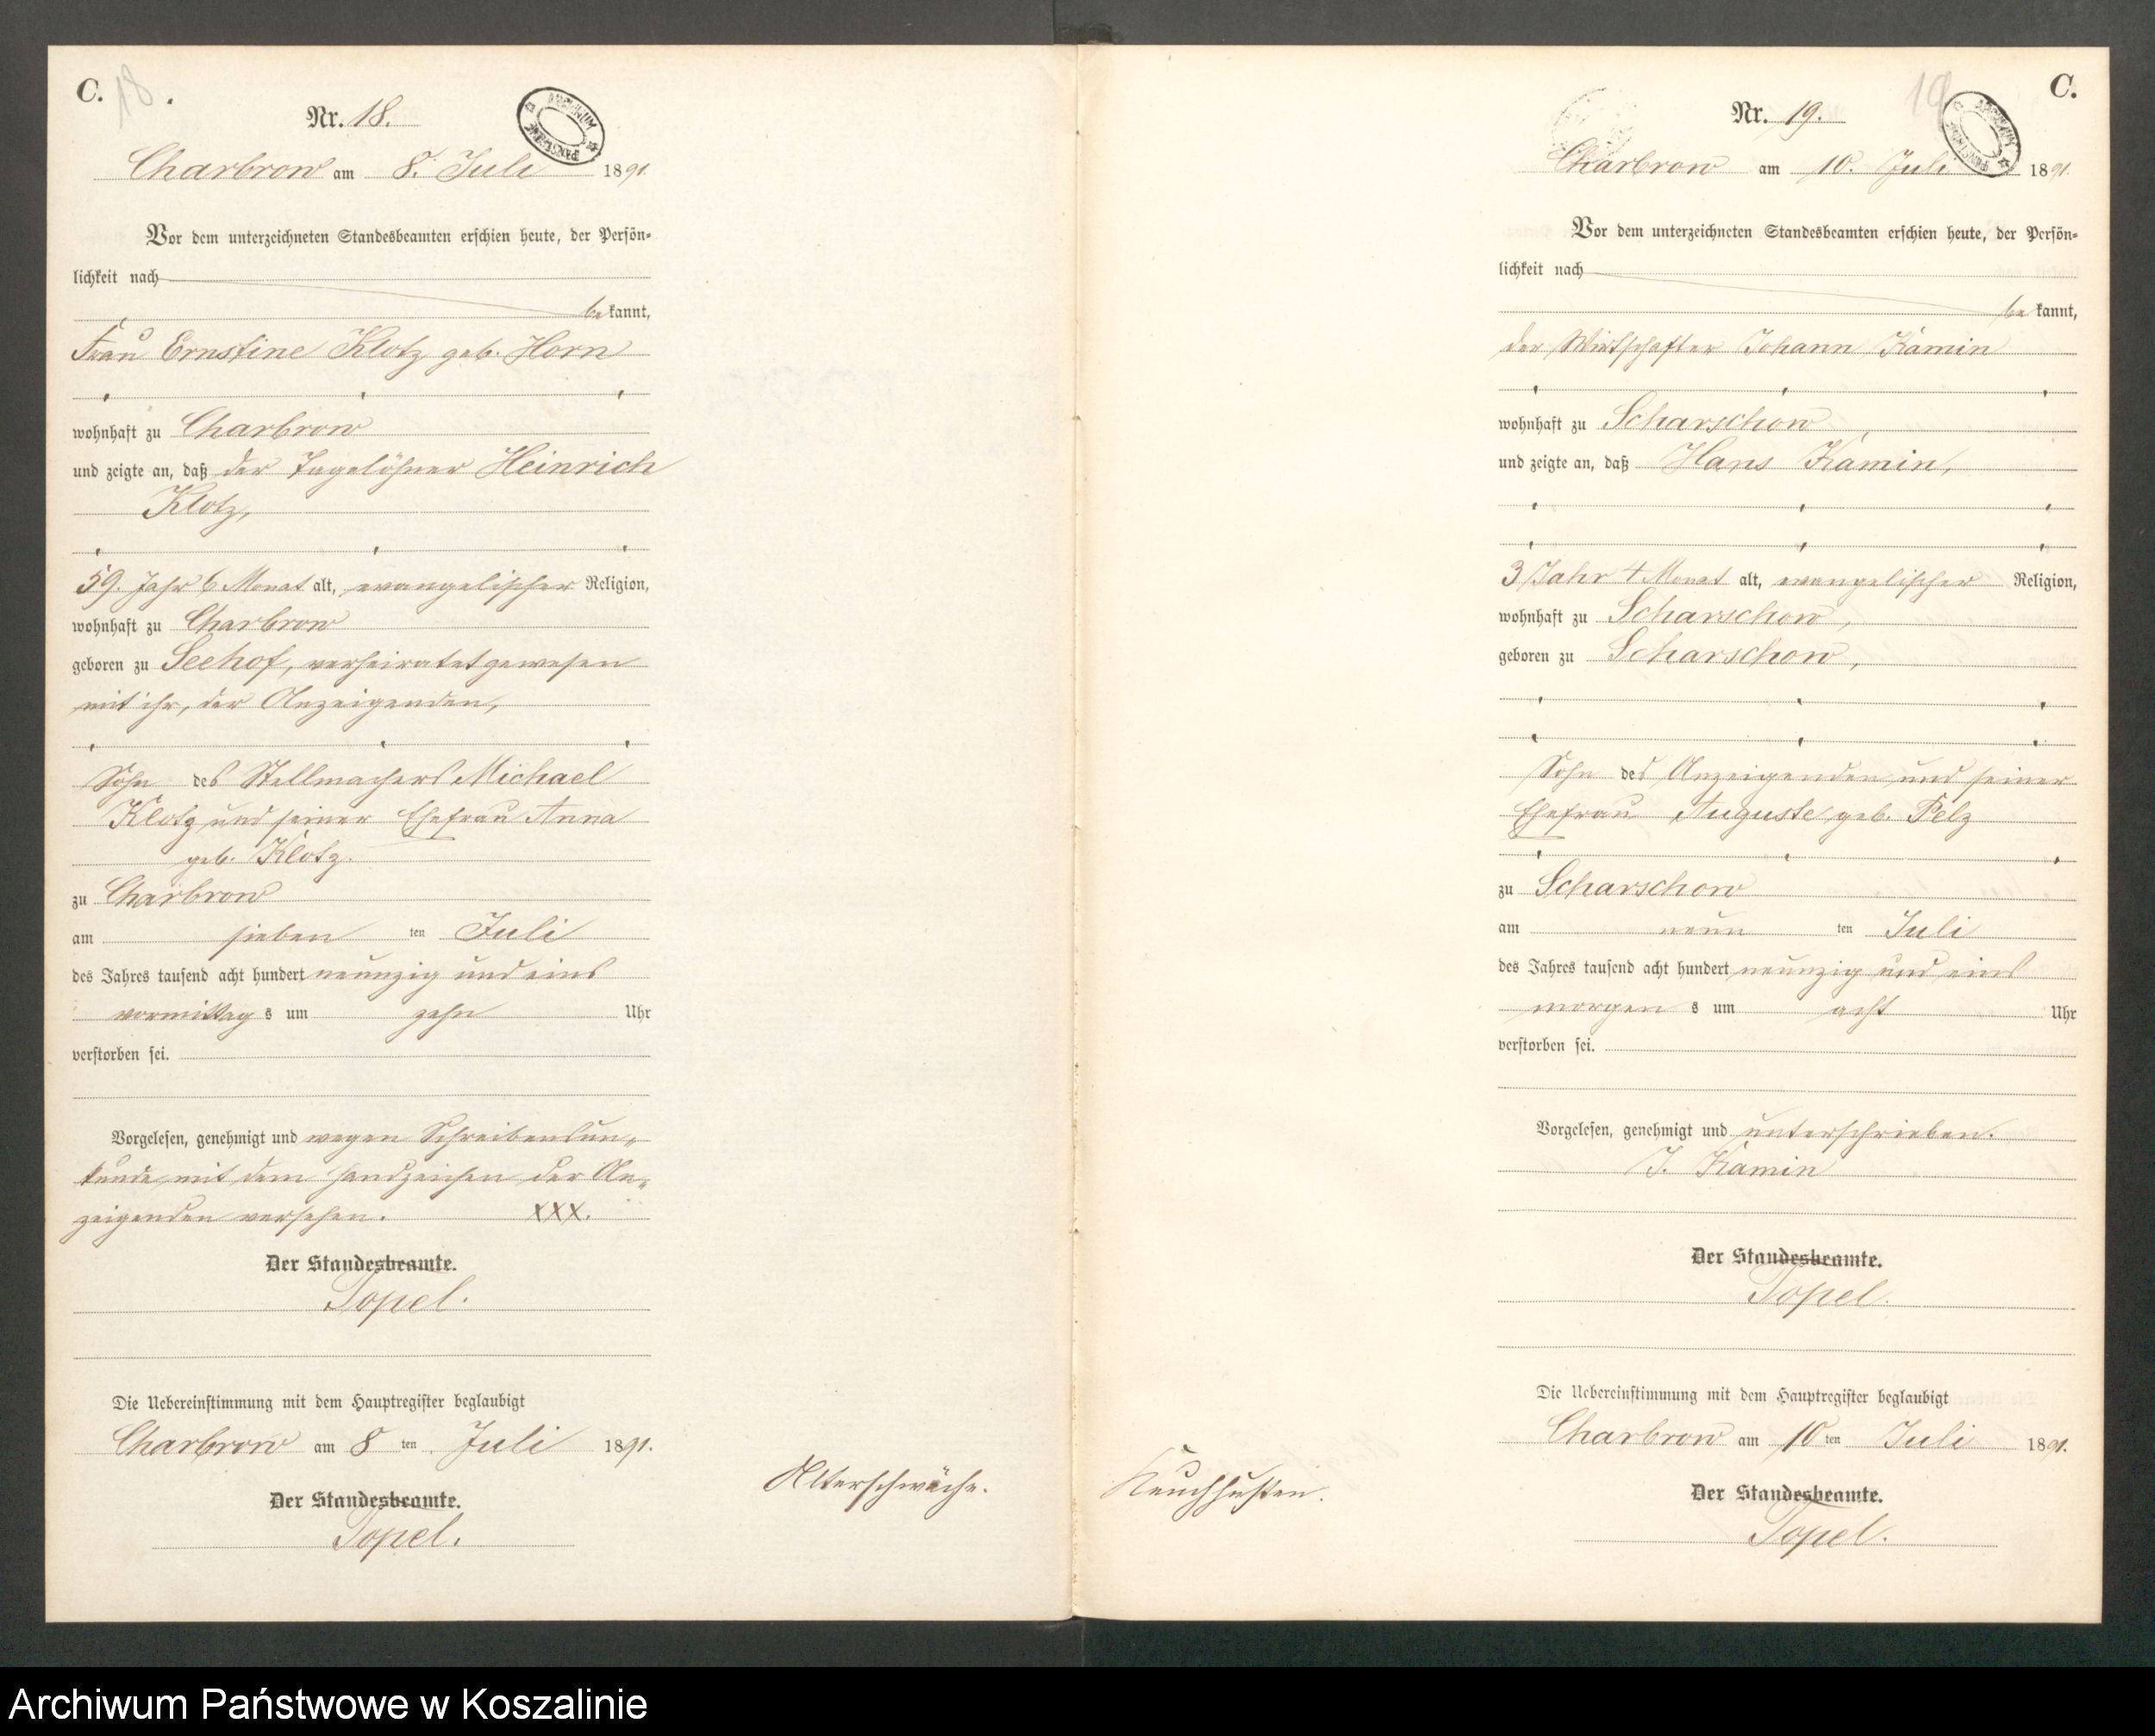 C. 18.
Nr. 18.
Charbrow am 8. Juli 1891.
Vor dem unterzeichneten Standesbeamten erschien heute, der Persön=
lichkeit nach
bekannt,
Frau Ernstine Klotz geb. Horn
wohnhaft zu Charbrow
und zeigte an, daß der Tagelöhner Heinrich
Klotz,
59. Jahr 6 Monat alt, evangelischer Religion,
wohnhaft zu Charbrow
geboren zu Seehof, verheiratet gewesen
mit ihr, der Anzeigenden,
Sohn des Stellmachers Michael
Klotz und seiner Ehefrau Anna
geb. Klotz.
zu Charbrow
am sieben ten Juli
des Jahres tausend acht hundert neunzig und eins
vormittag s um zehn Uhr
verstorben sei.
Vorgelesen, genehmigt und wegen Schreibensun=
kunde mit dem Handzeichen der An=
zeigenden versehen. XXX.
Der Standesbeamte.
Topel.
Die Uebereinstimmung mit dem Hauptregister beglaubigt
Charbrow am 8 ten Juli 1891.
Der Standesbeamte.
Topel.
Alterschwäche.
19 C.
Nr. 19.
ARCHIWUM PAŃSTWOWE
Charbrow am 10. Juli 1891.
Vor dem unterzeichneten Standesbeamten erschien heute, der Persön=
lichkeit nach
bekannt,
der Wirtschafter Johann Kamin
wohnhaft zu Scharschow,
und zeigte an, daß Hans Kamin,
3 Jahr 4 Monat alt, evangelischer Religion,
wohnhaft zu Scharschow,
geboren zu Scharschow,
Sohn des Anzeigenden und seiner
Ehefrau Auguste geb. Pelz
zu Scharschow
am neun ten Juli
des Jahres tausend acht hundert neunzig und eins
morgen s um acht Uhr
verstorben sei.
Vorgelesen, genehmigt und unterschrieben.
J. Kamin
Der Standesbeamte.
Topel.
Die Uebereinstimmung mit dem Hauptregister beglaubigt
Charbrow am 10 ten Juli 1891.
Der Standesbeamte.
Topel.
Keuchhusten.
Archiwum Państwowe w Koszalinie